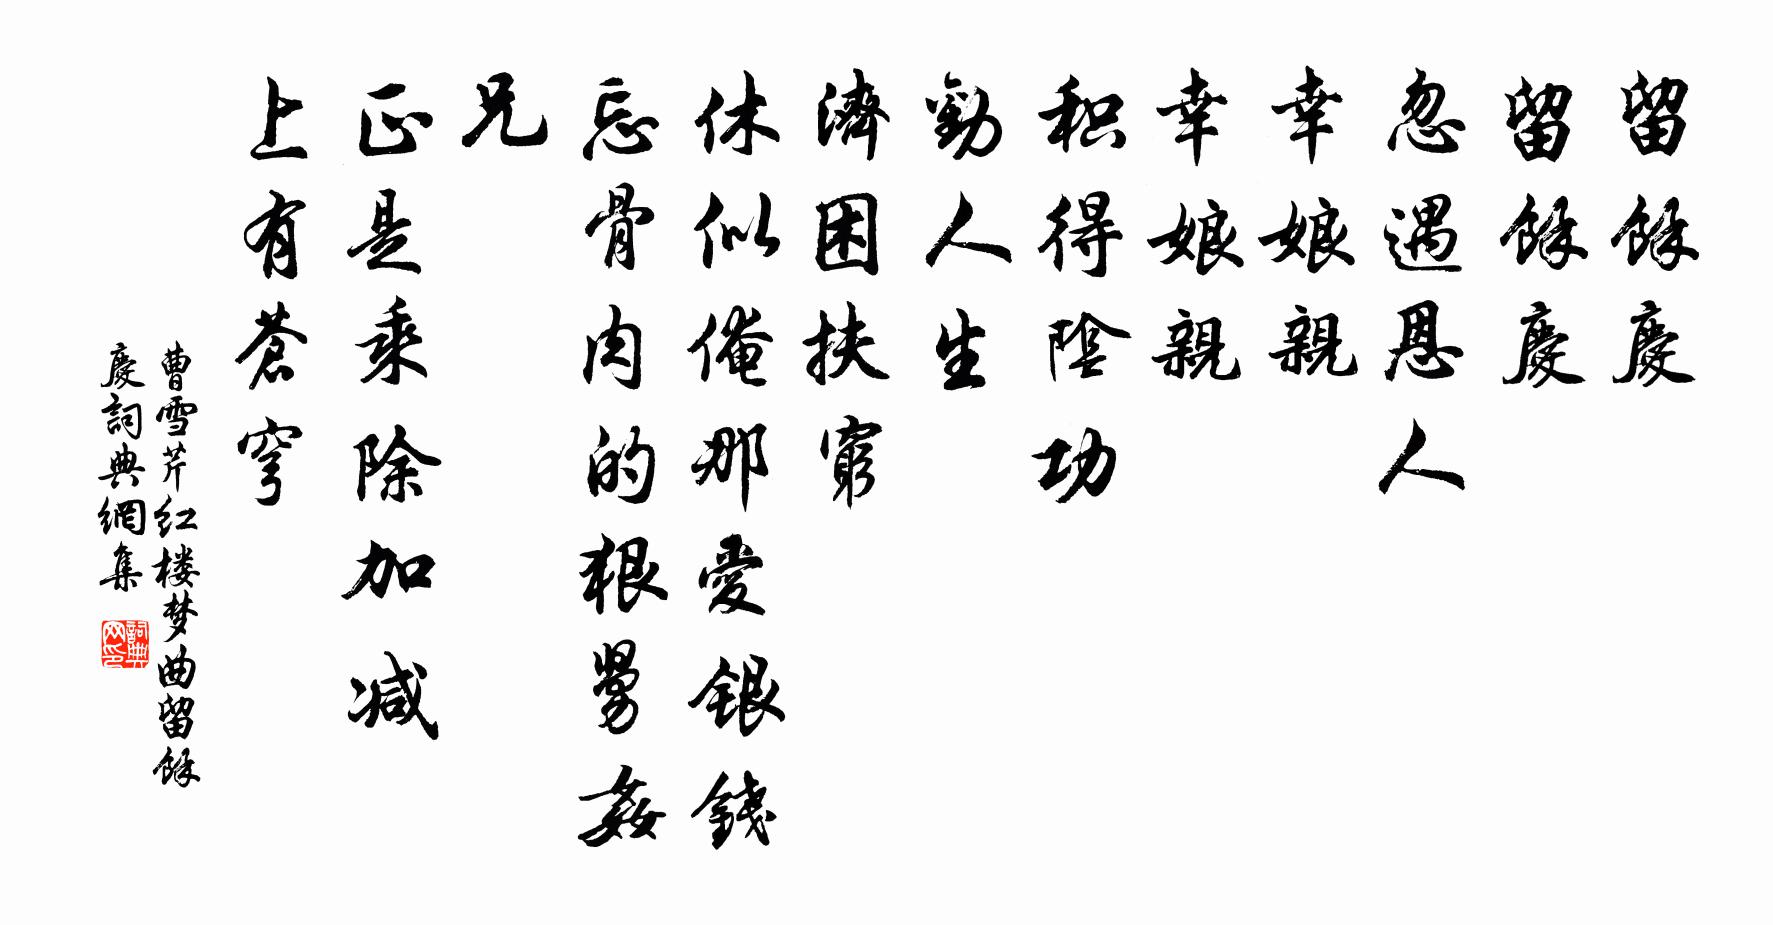 留餘慶
留餘慶
忽遇恩人
幸娘親
幸娘親
积得陰功
勸人生
濟困扶窮
休似俺那愛銀錢
忘骨肉的狠舅姦
兄
正是乘除加减
上有蒼穹
曹雪芹红楼梦曲留餘
慶詞典網集
詞典
网印